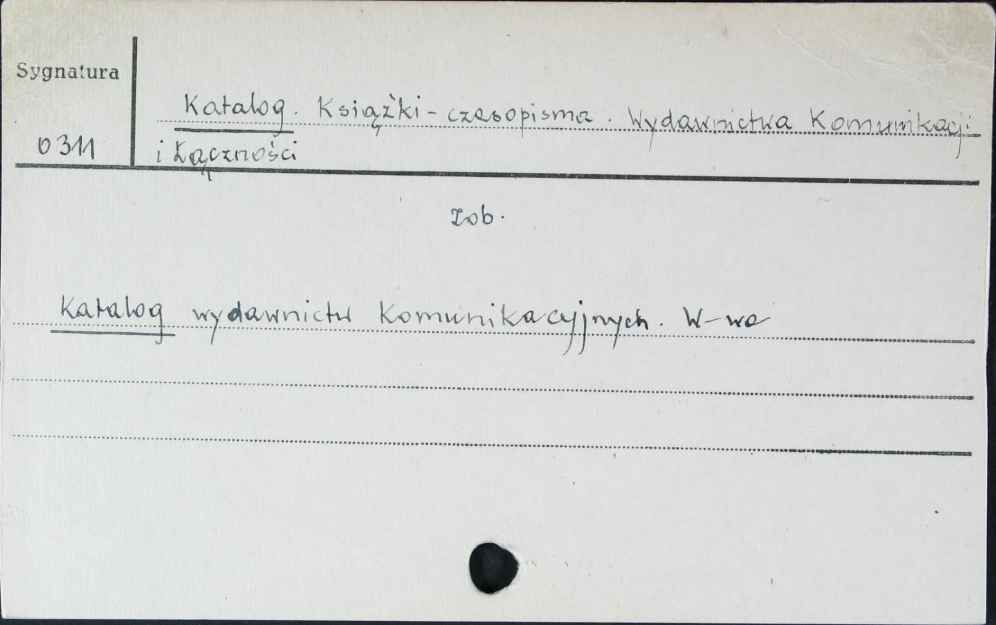 Sygnatura
Katalog. Książki - czasopisma. Wydawnictwa Komunikacji
0311
i Łączności
Zob.
Katalog wydawnictw Komunikacyjnych. W-wa